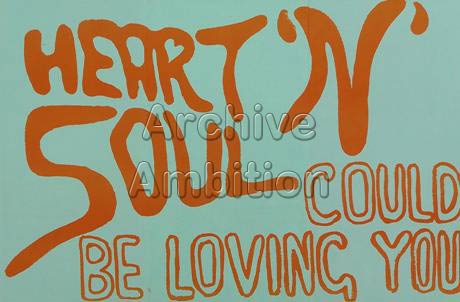 HEART 'N'
SOUL
COULD
BE LOVING YOU
Archive
Ambition